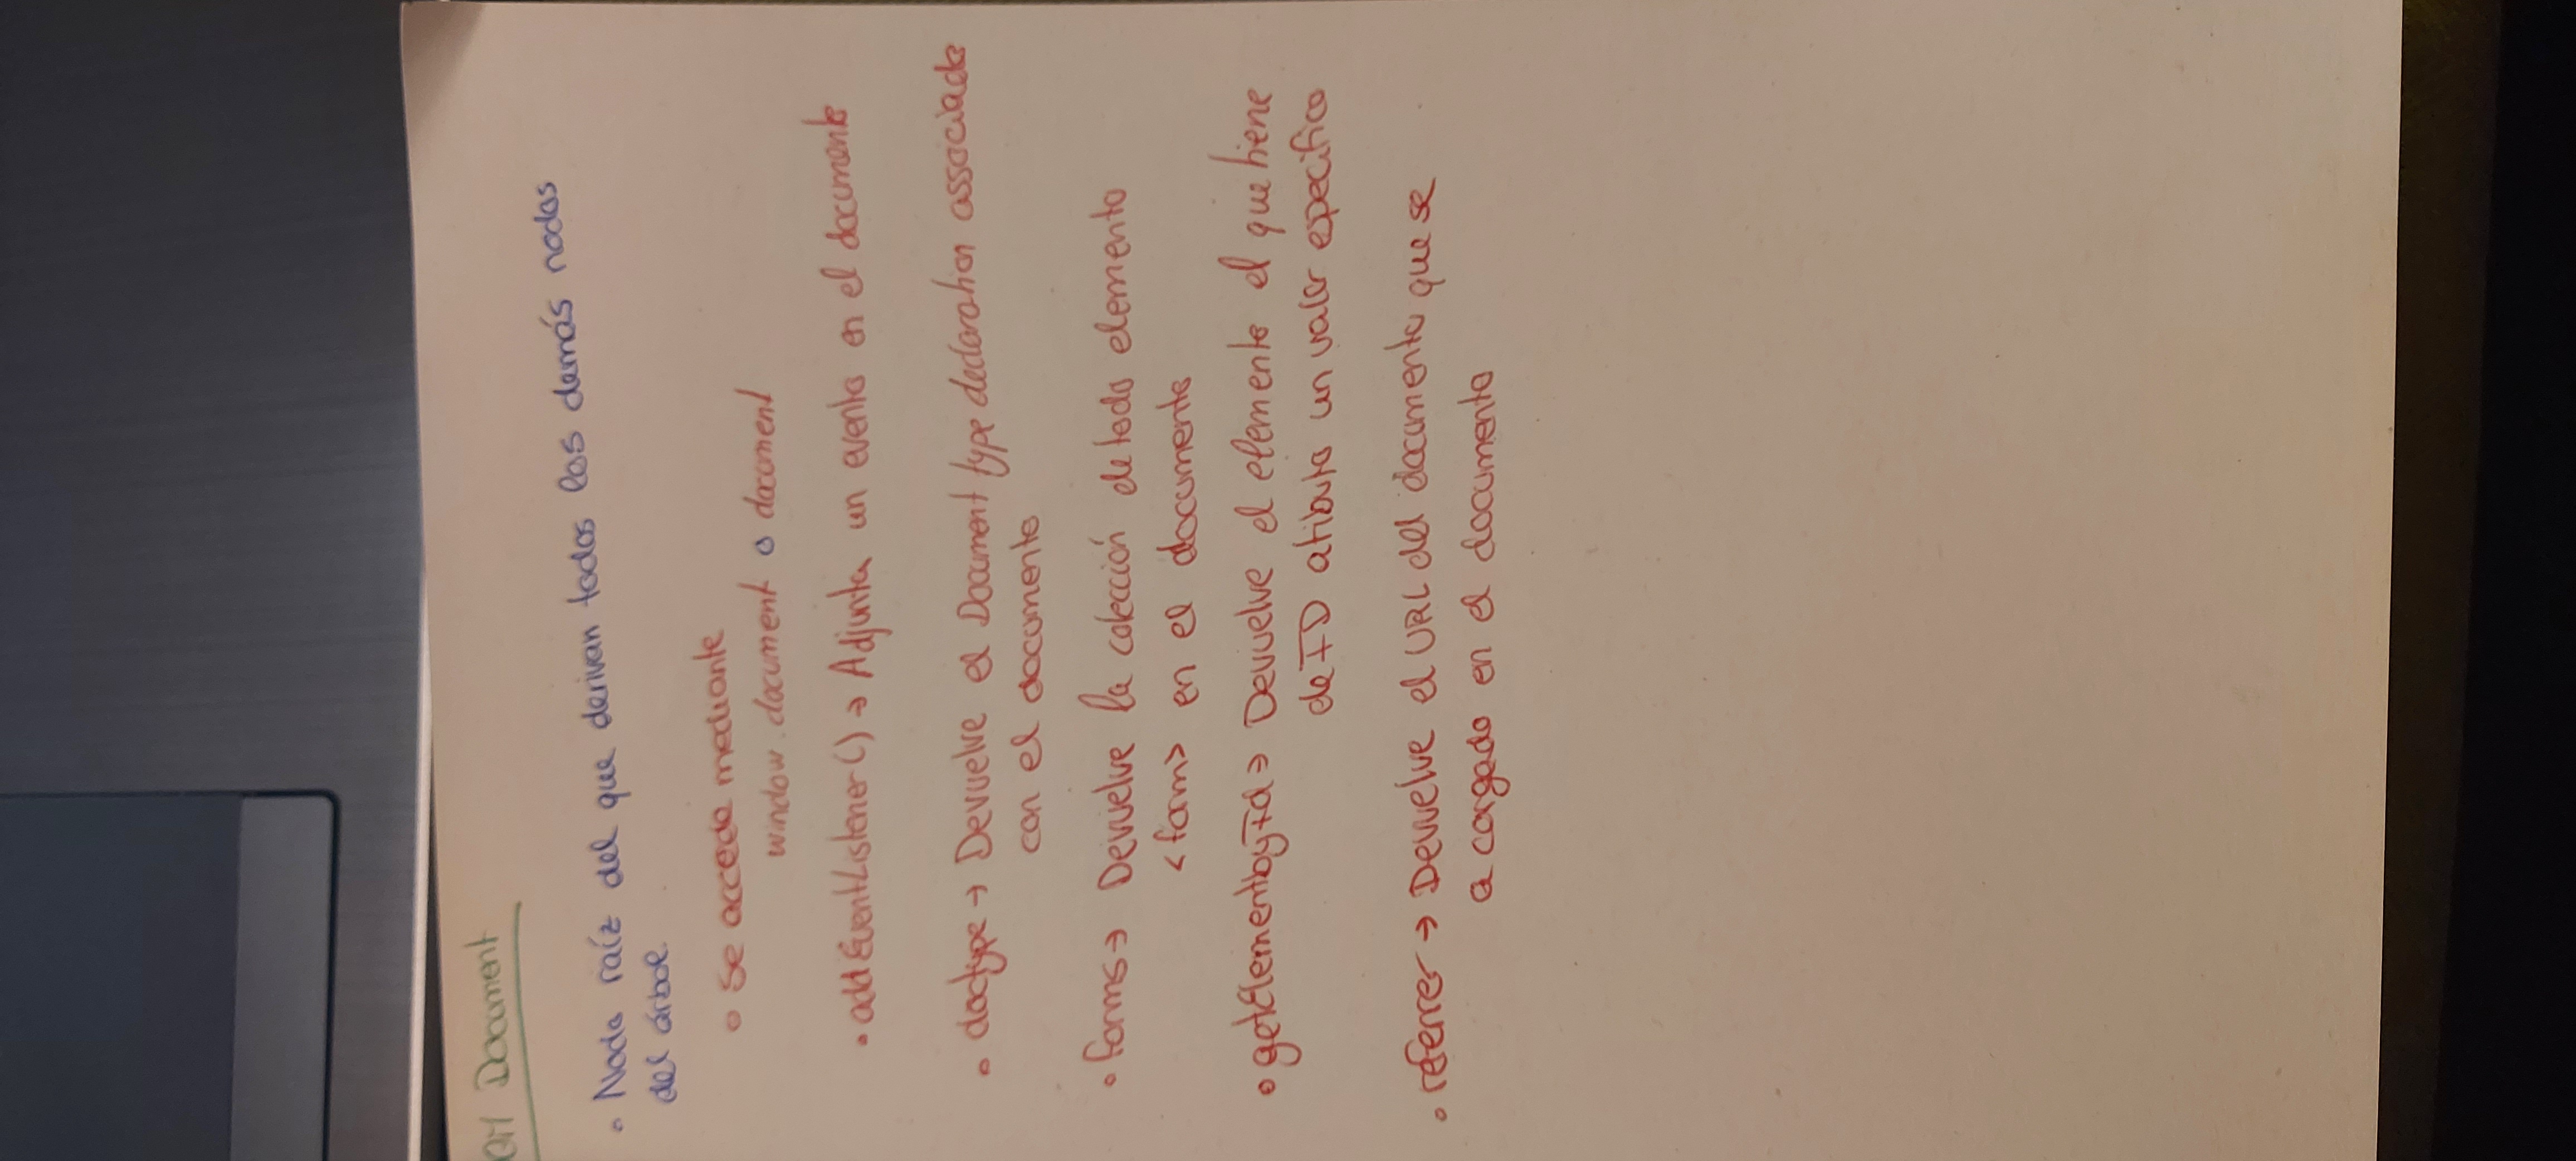 OM Document
• Nodo raíz del que derivan todos los demás nodos
del árbol.
• Se accede mediante
window.document o document
• addEventListener() → Adjunta un evento en el documento
• doctype → Devuelve el Document type declaration associado
con el documento
• forms → Devuelve la colección de todo elemento
<form> en el documento
• getElementbyId → Devuelve el elemento el que tiene
de ID atibuto un valor epecifico
• referrer → Devuelve el URL del documento que se
a cargado en el documento